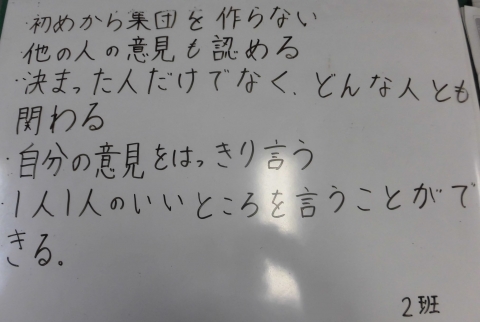 ・初めから集団を作らない
・他の人の意見も認める
・決まった人だけでなく、どんな人とも
関わる
・自分の意見をはっきり言う
・1人1人のいいところを言うことがで
きる。
2班